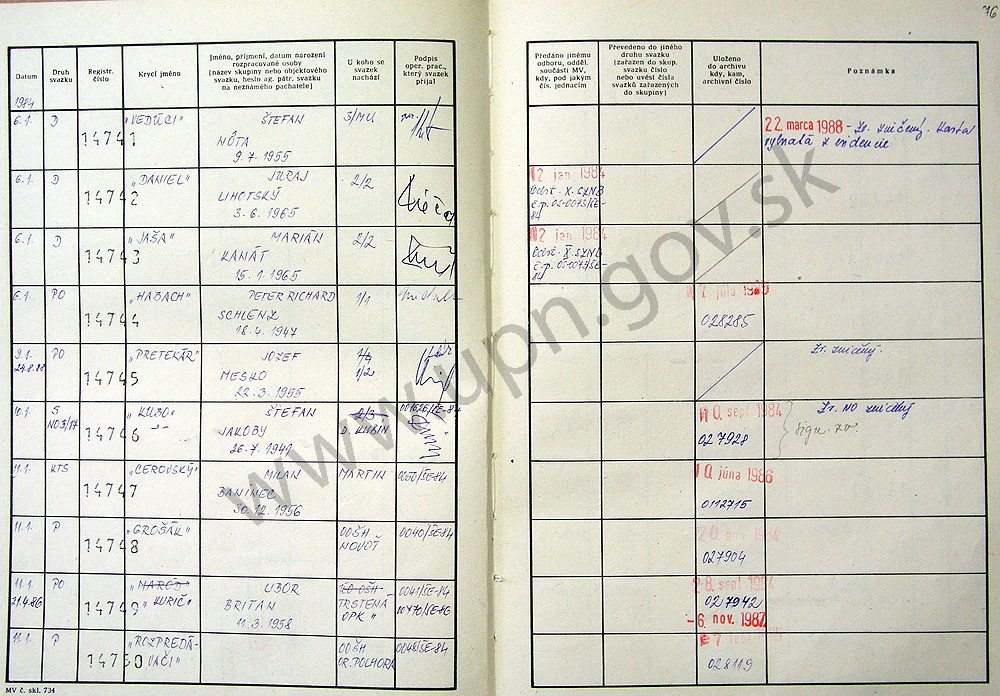 76
Datum
Druh svazku
Registr. číslo
Krycí jméno
Jméno, příjmení, datum narození rozpracované osoby (název skupiny nebo objektového svazku, heslo ag. pátr. svazku na neznámého pachatele)
U koho se svazek nachází
Podpis oper. prac., který svazek přijal
Předáno jinému odboru, odděl. součásti MV, kdy, pod jakým čís. jednacím
Převedeno do jiného druhu svazku (zařazen do skup. svazku číslo nebo uvést čísla svazků zařazených do skupiny)
Uloženo do archivu kdy, kam, archivní číslo
Poznámka
1984
6.1. D 14741 „VEDÚCI" ŠTEFAN S/MU
NÔTA
9.7.1955
22. marca 1988 - Zv. zničený. Karta
vybratá z evidencie
6.1. D 14742 „DANIEL" JURAJ 2/2
LIHOTSKÝ
3.6.1965
12 jan 1984
Odst. X. SZNB
č.p. OS-0073/SE-
84
6.1. D 14743 „JAŠA" MARIÁN 2/2
KANÁT
15.1.1965
12 jan 1984
Odst. X. SZNB
č.p. OS-0073/SE-
84
6.1. PO 14744 „HABACH" PETER RICHARD 1/1
SCHLENZ
18.4.1947
028285
9.1. PO 14745 „PRETEKÁR" JOZEF 1/2
MESKO
22.3.1955
Zv. zničený.
10.1. S 14746 „KUBO" ŠTEFAN 2/3
JAKOBY D. KUBÍN
26.7.1941
0. sept 1984
027928
Zv. NO zničený
sign. zv.
11.1. KTS 14747 „CEROVSKÝ" MILAN MARTIN 0050/ŠE-84
BANINEC
30.12.1956
10. júna 1986
0112715
11.1. P 14748 „GROŠÁK" OOŠH 0040/ŠE-84
NOVOŤ
027904
11.1. PO 14749 „MAROŠ" ĽUBOR OOŠH 0041/ŠE-84
21.4.86 „KURIČ" BRITAN TRSTENÁ
11.3.1958 OPK"
027942
-6. nov. 1987
11.1. P 14750 „ROZPREDÁ- OOŠH 0048/ŠE-84
VAČI" OR. POLHORA
028119
MV č. skl. 734
www.upn.gov.sk